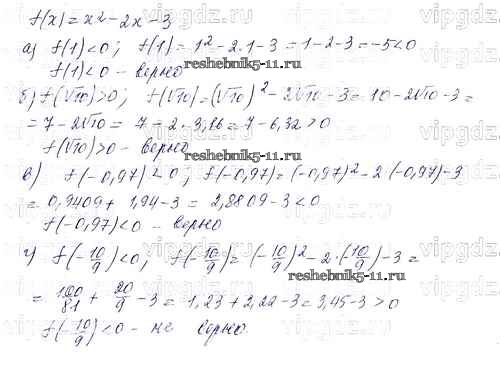 f(x) = x² - 2x - 3
а) f(1) < 0; f(1) = 1² - 2·1 - 3 = 1 - 2 - 3 = -5 < 0
f(1) < 0 - верно
reshebnik5-11.ru
б) f(√10) > 0; f(√10) = (√10)² - 2√10 - 3 = 10 - 2√10 - 3 =
= 7 - 2√10 = 7 - 2·3,16 = 7 - 6,32 > 0
f(√10) > 0 - верно
reshebnik5-11.ru
в) f(-0,97) < 0; f(-0,97) = (-0,97)² - 2·(-0,97) - 3
= 0,9409 + 1,94 - 3 = 2,8809 - 3 < 0
f(-0,97) < 0 - верно
г) f(-10/9) < 0; f(-10/9) = (-10/9)² - 2·(-10/9) - 3 =
reshebnik5-11.ru
= 100/81 + 20/9 - 3 = 1,23 + 2,22 - 3 = 3,45 - 3 > 0
f(-10/9) < 0 - не верно